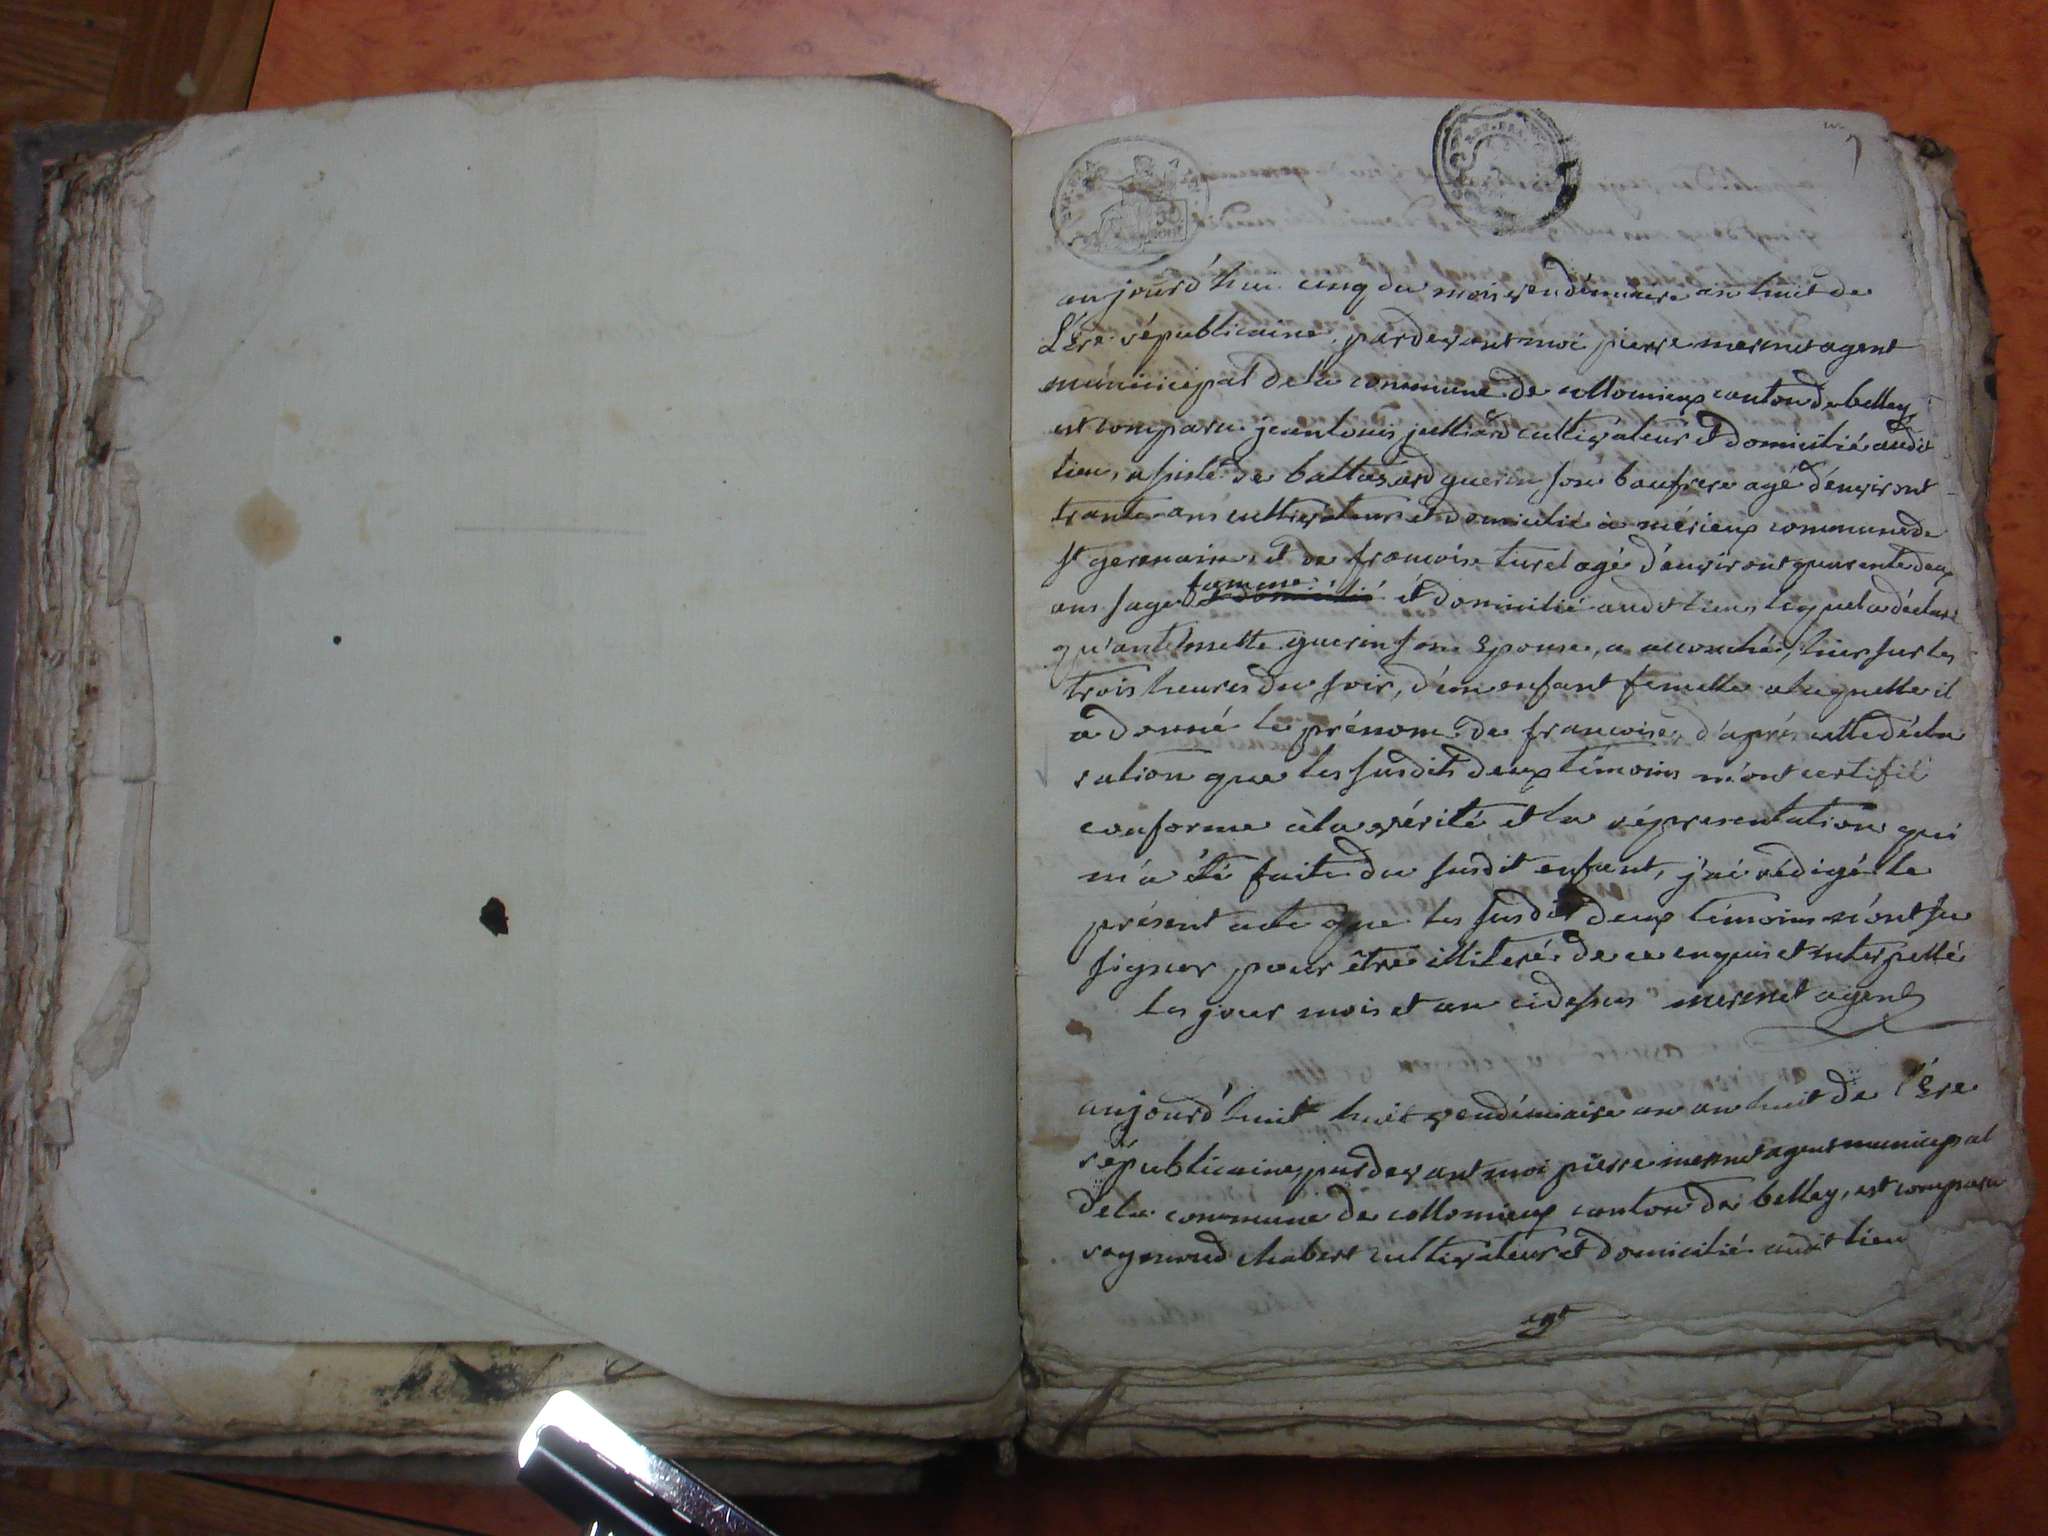 aujourd'hui cinq du mois vendémiaire an huit de
L'Ere républicaine, pardevant moi pierre mermet agent
municicipal dela commune de collomieux canton de belley,
est comparu jeanlouis julliard cultivateur et domicilié audit
lieu, assisté de baltasard guerin son baufrere agé d'environt
trante ans cultivateur et domicilié à mérieux commune de
st germain, et de francoise turel agé d'environt quarente deux
ans sage famme et domicilié audit lieu, lequel a déclaré
qu'anthelmette guerin son Epouse, a accouchée, hier sur les
trois heures du soir, d'un enfant femelle alaquelle il
a donné le prénom de francoise, d'après cette décla
ration que les susdits deux témoins m'ont certifié
conforme àla vérité et la réprésentation qui
m'a été faite du susdit enfant, j'ai rédigé le
présent acte que les susdit deux témoins n'ont su
signer pour être illiteré de ce enquis et interpellé
les jour mois et an cidessus mermet agent
aujourd'huit huit vendémiaire an an huit de l'Ere
républicaine, pardevant moi pierre mermet agent municipal
dela commune de collomieux canton de belley, est comparu
reymond chabert cultivateur et domicilié audit lieu